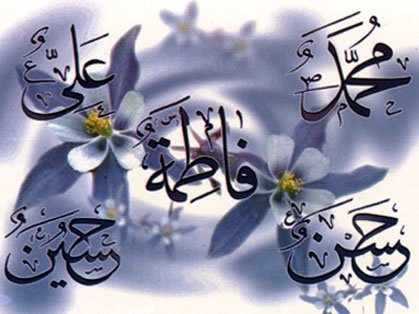 محمد علی
فاطمة
حسن حسین